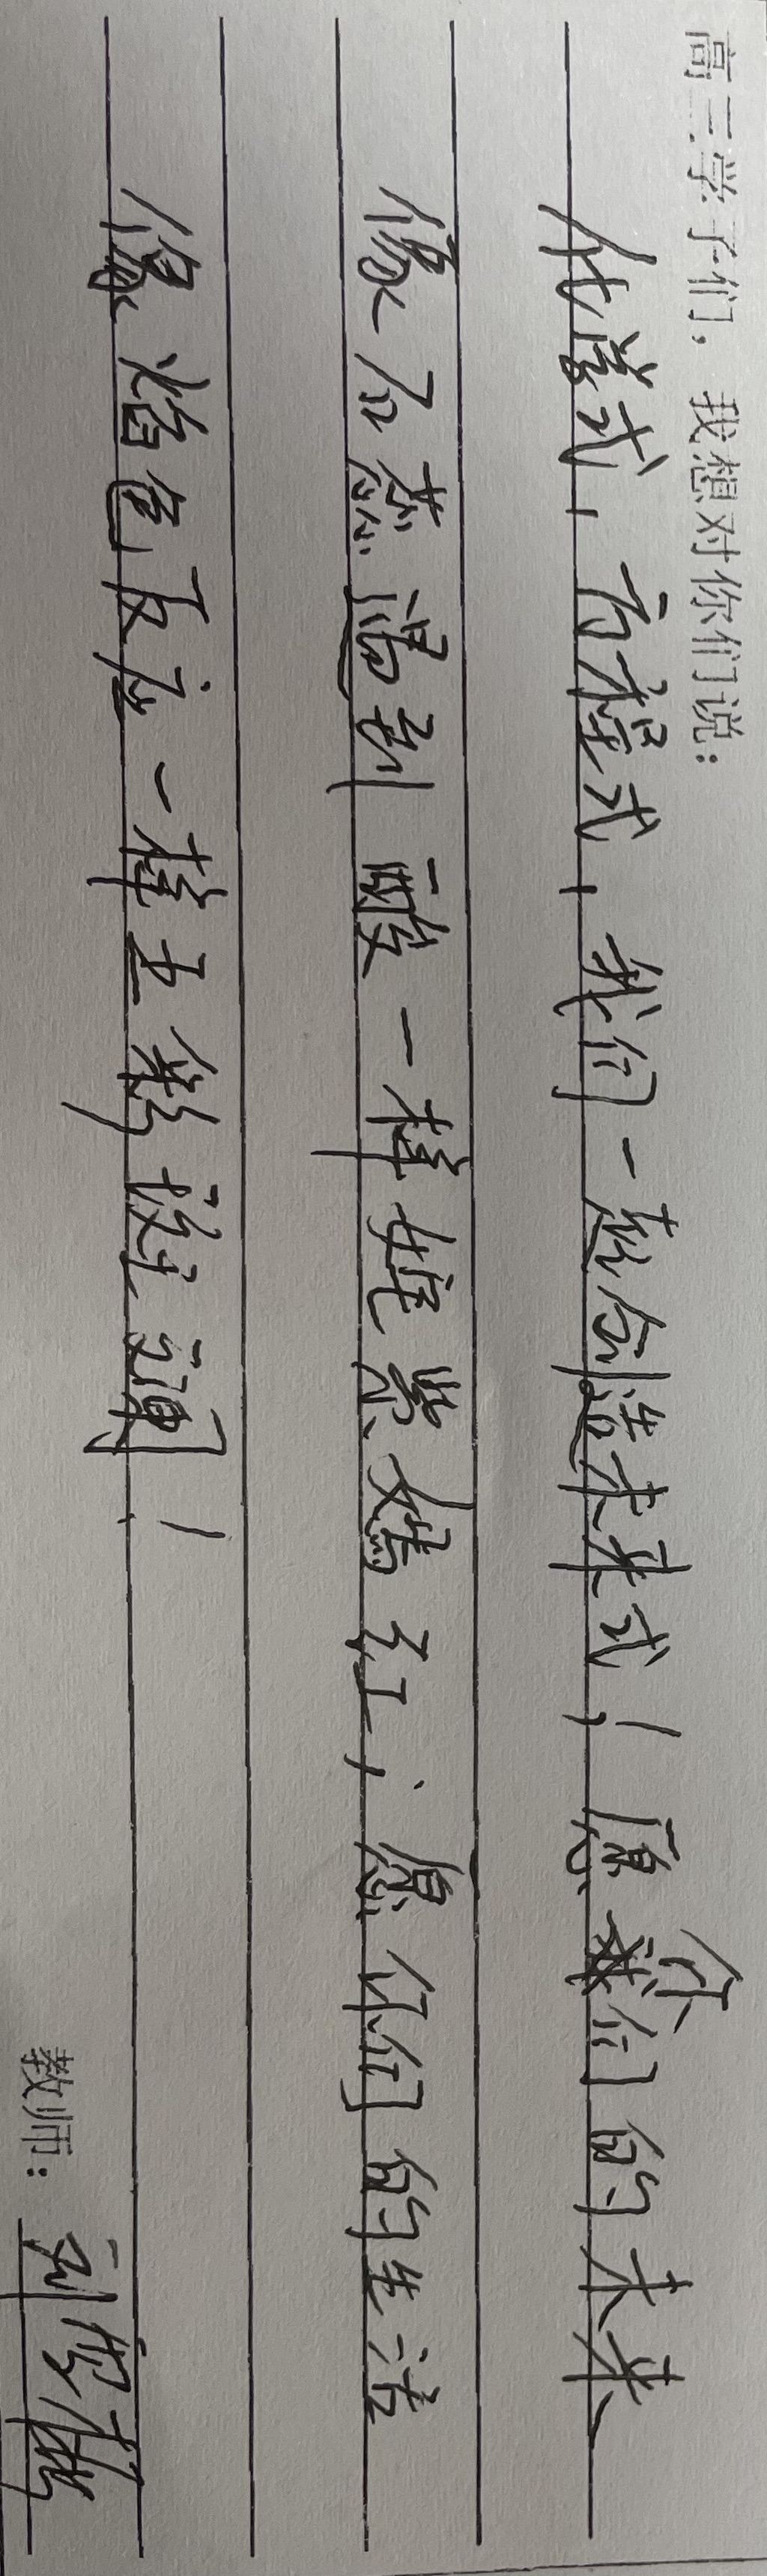 高三学子们，我想对你们说：
化学式，方程式，我们一起创造未来式！愿你们的未来
像石蕊遇到酸一样姹紫嫣红，愿你们的生活
像焰色反应一样五彩斑斓！
教师：